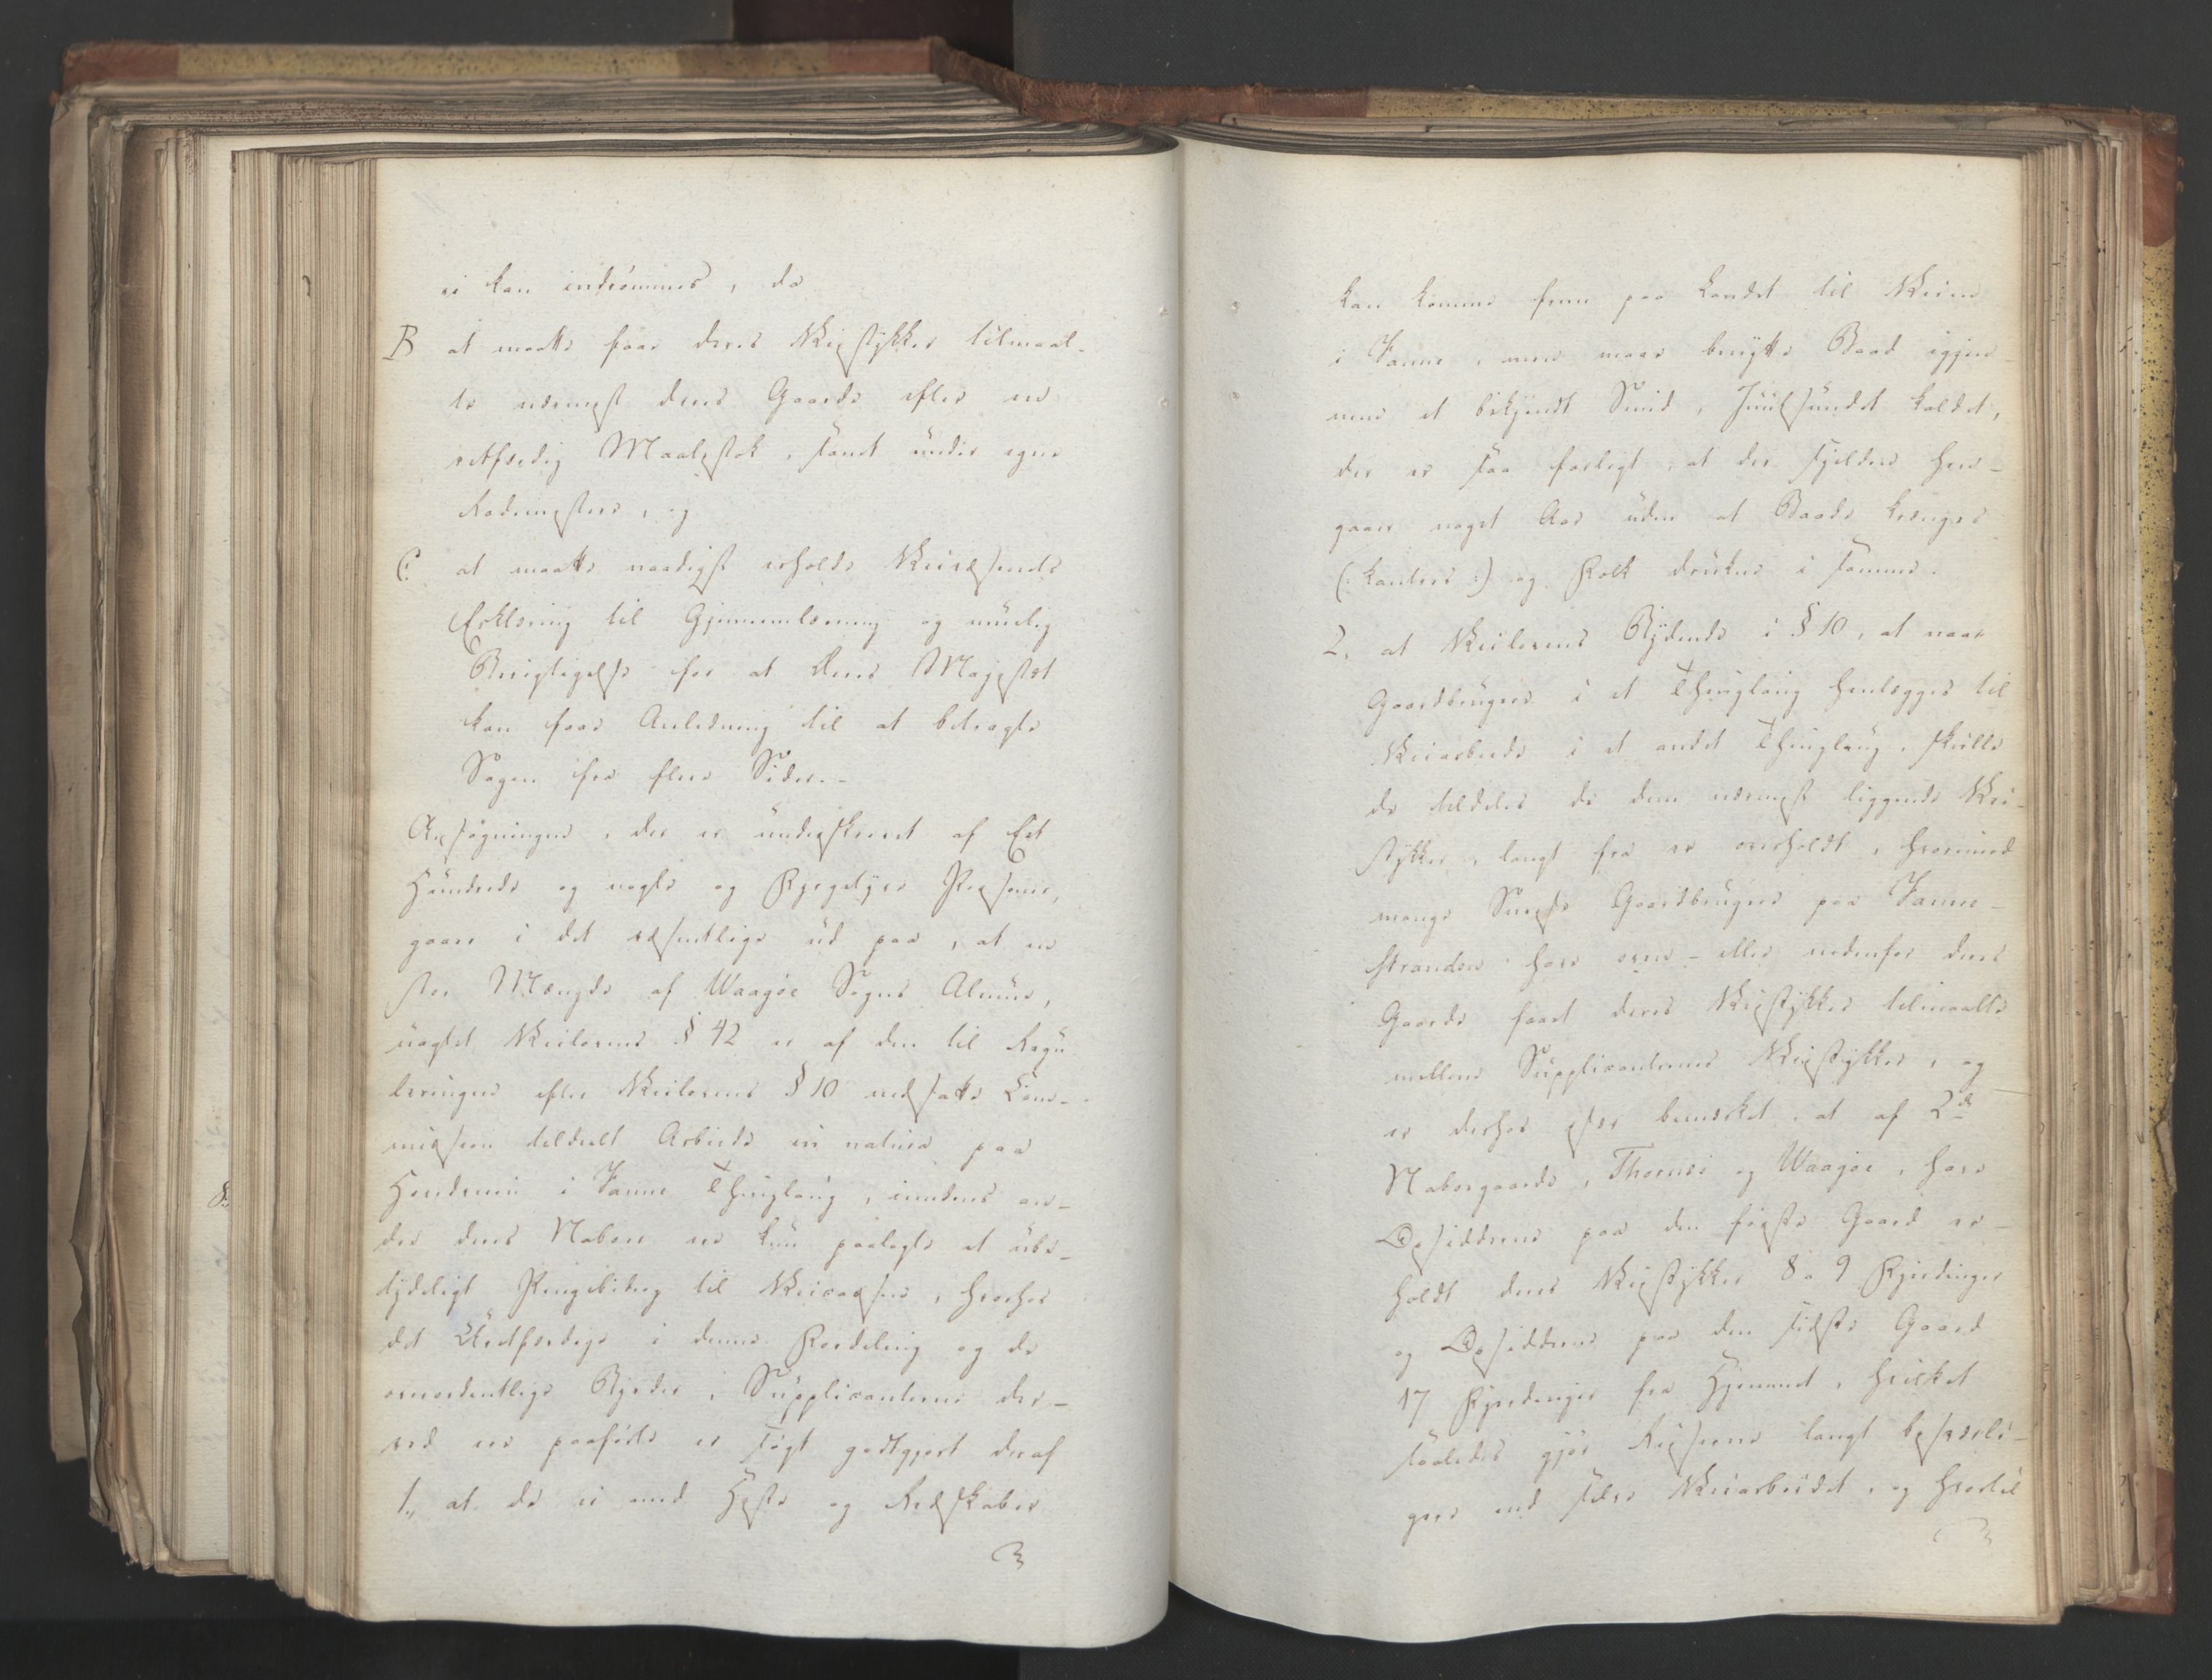 ei kan indrømmes, da
B at maatte faae deres Veistykker tilmaal-
te nærmest deres Gaarde efter en
retfærdig Maalestok, samt under egne
Rodemestere, og
C. at maatte naadigst erholde Veivæsenets
Erklæring til Gjennemlæsning og muelig
Berigtigelse for at Deres Majestæt
kan faae Anledning til at betragte
Sagen fra flere Sider. -
Ansøgningen, der er underskrevet af Eet
Hundrede og nogle og Fyrgetyve Personer,
gaaer i det væsentlige ud paa, at en
stor Mængde af Waagøe Sogns Almue,
uagtet Veilovens § 42 er af den til Regu
leringen efter Veilovens § 10 nedsatte Com-
mission tildeelt Arbeide in natura paa
Hovedveien i Fanne Thinglaug, imedens an-
dre deres Naboer ere kun paalagte et ube-
tydeligt Pengebidrag til Veivæsenet, hvorhos
det Uretfærdige i denne Fordeling og de
overordentlige Byrder, Supplicanterne der-
ved ere paaførte er søgt godtgjort deraf
1., at de ei med Heste og Redskaber
kan komme frem paa Landet til Veiene
i Fanne, men maae benytte Baad igjen-
nem et bekjendt Sund, Juulsundet kaldet,
der er saa farligt, at der sjelden hen-
gaaer noget Aar uden at Baade kænges
(: kantres :) og Folk drukne i samme.
2. at Veilovens Bydende i § 10, at naar
Gaardbrugere i et Thinglaug henlægges til
Veiarbeide i et andet Thinglaug, skulle
de tildeles de dem nærmest liggende Vei-
stykker, langt fra er overholdt, hvorimod
mange Gaardbrugere paa Fanne-
stranden have oven- eller nedenfor deres
Gaarde faaet deres Veistykker tilmaalte
mellem Supplicanternes Veistykker, og
er derhos især bemærket, at af 2de
Nabogaarde, Thornæs og Waagøe, have
Opsidderne paa den første Gaard er-
holdt deres Veistykker 8 a 9 Fjerdinger
og Opsidderne paa den sidste Gaard
17 Fjerdinger fra Hjemmet, hvilket
saaledes gjør Reiserne langt besværli-
gere end selve Veiarbeidet, og hvortil